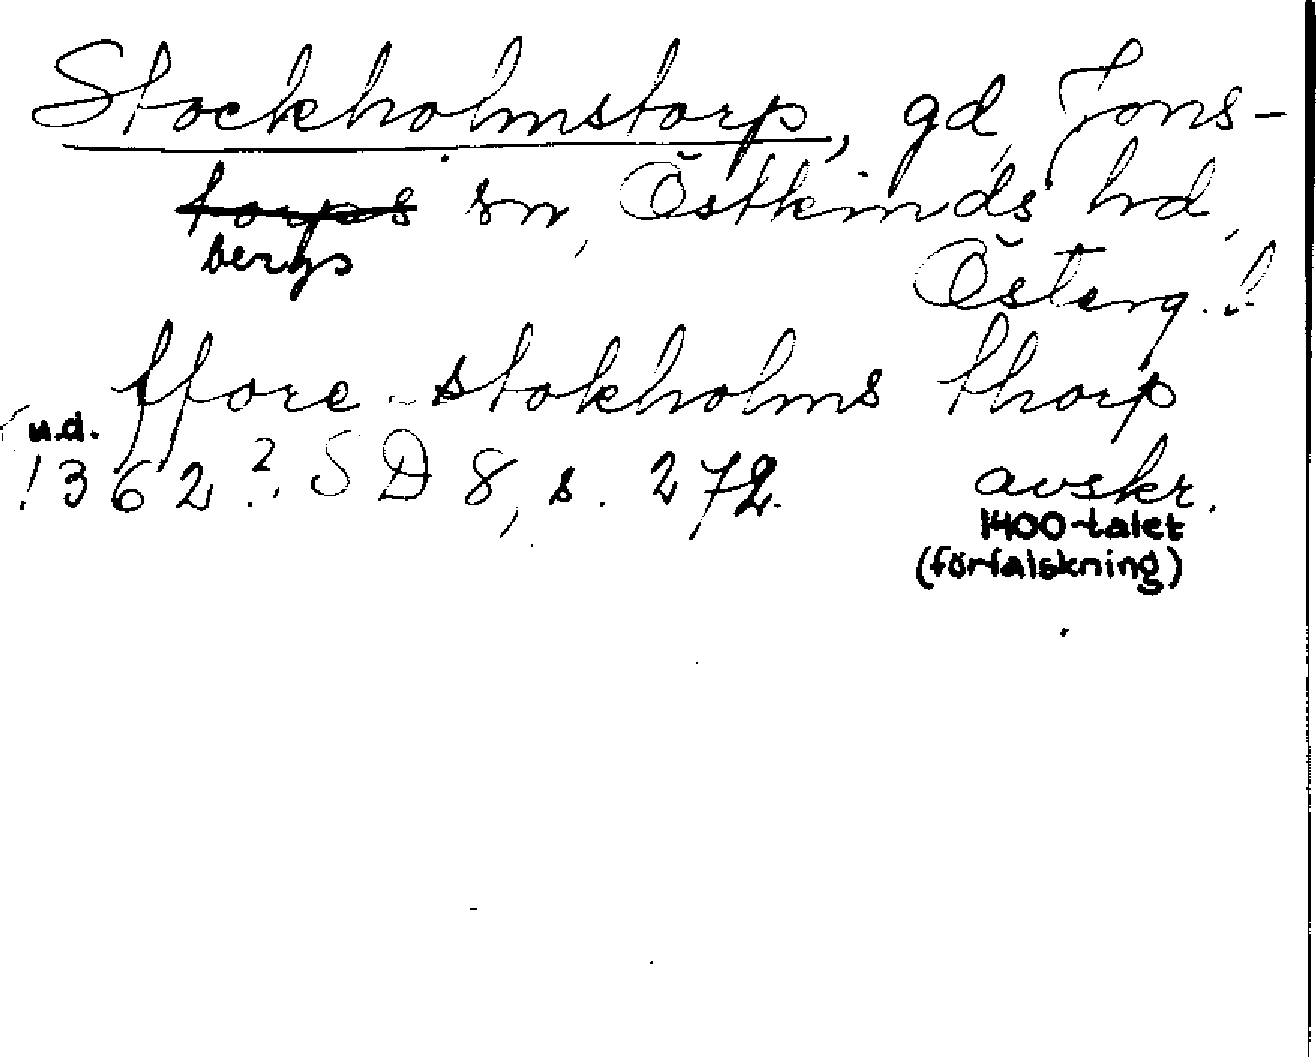 Stockholmstorp, gd, Jons-
torps sn, Östkinds hd,
bergs
Österg.l
ffore stokholms thorp
u.d.
1362?. SD 8, s. 272. avskr.
1400-talet
(förfalskning)